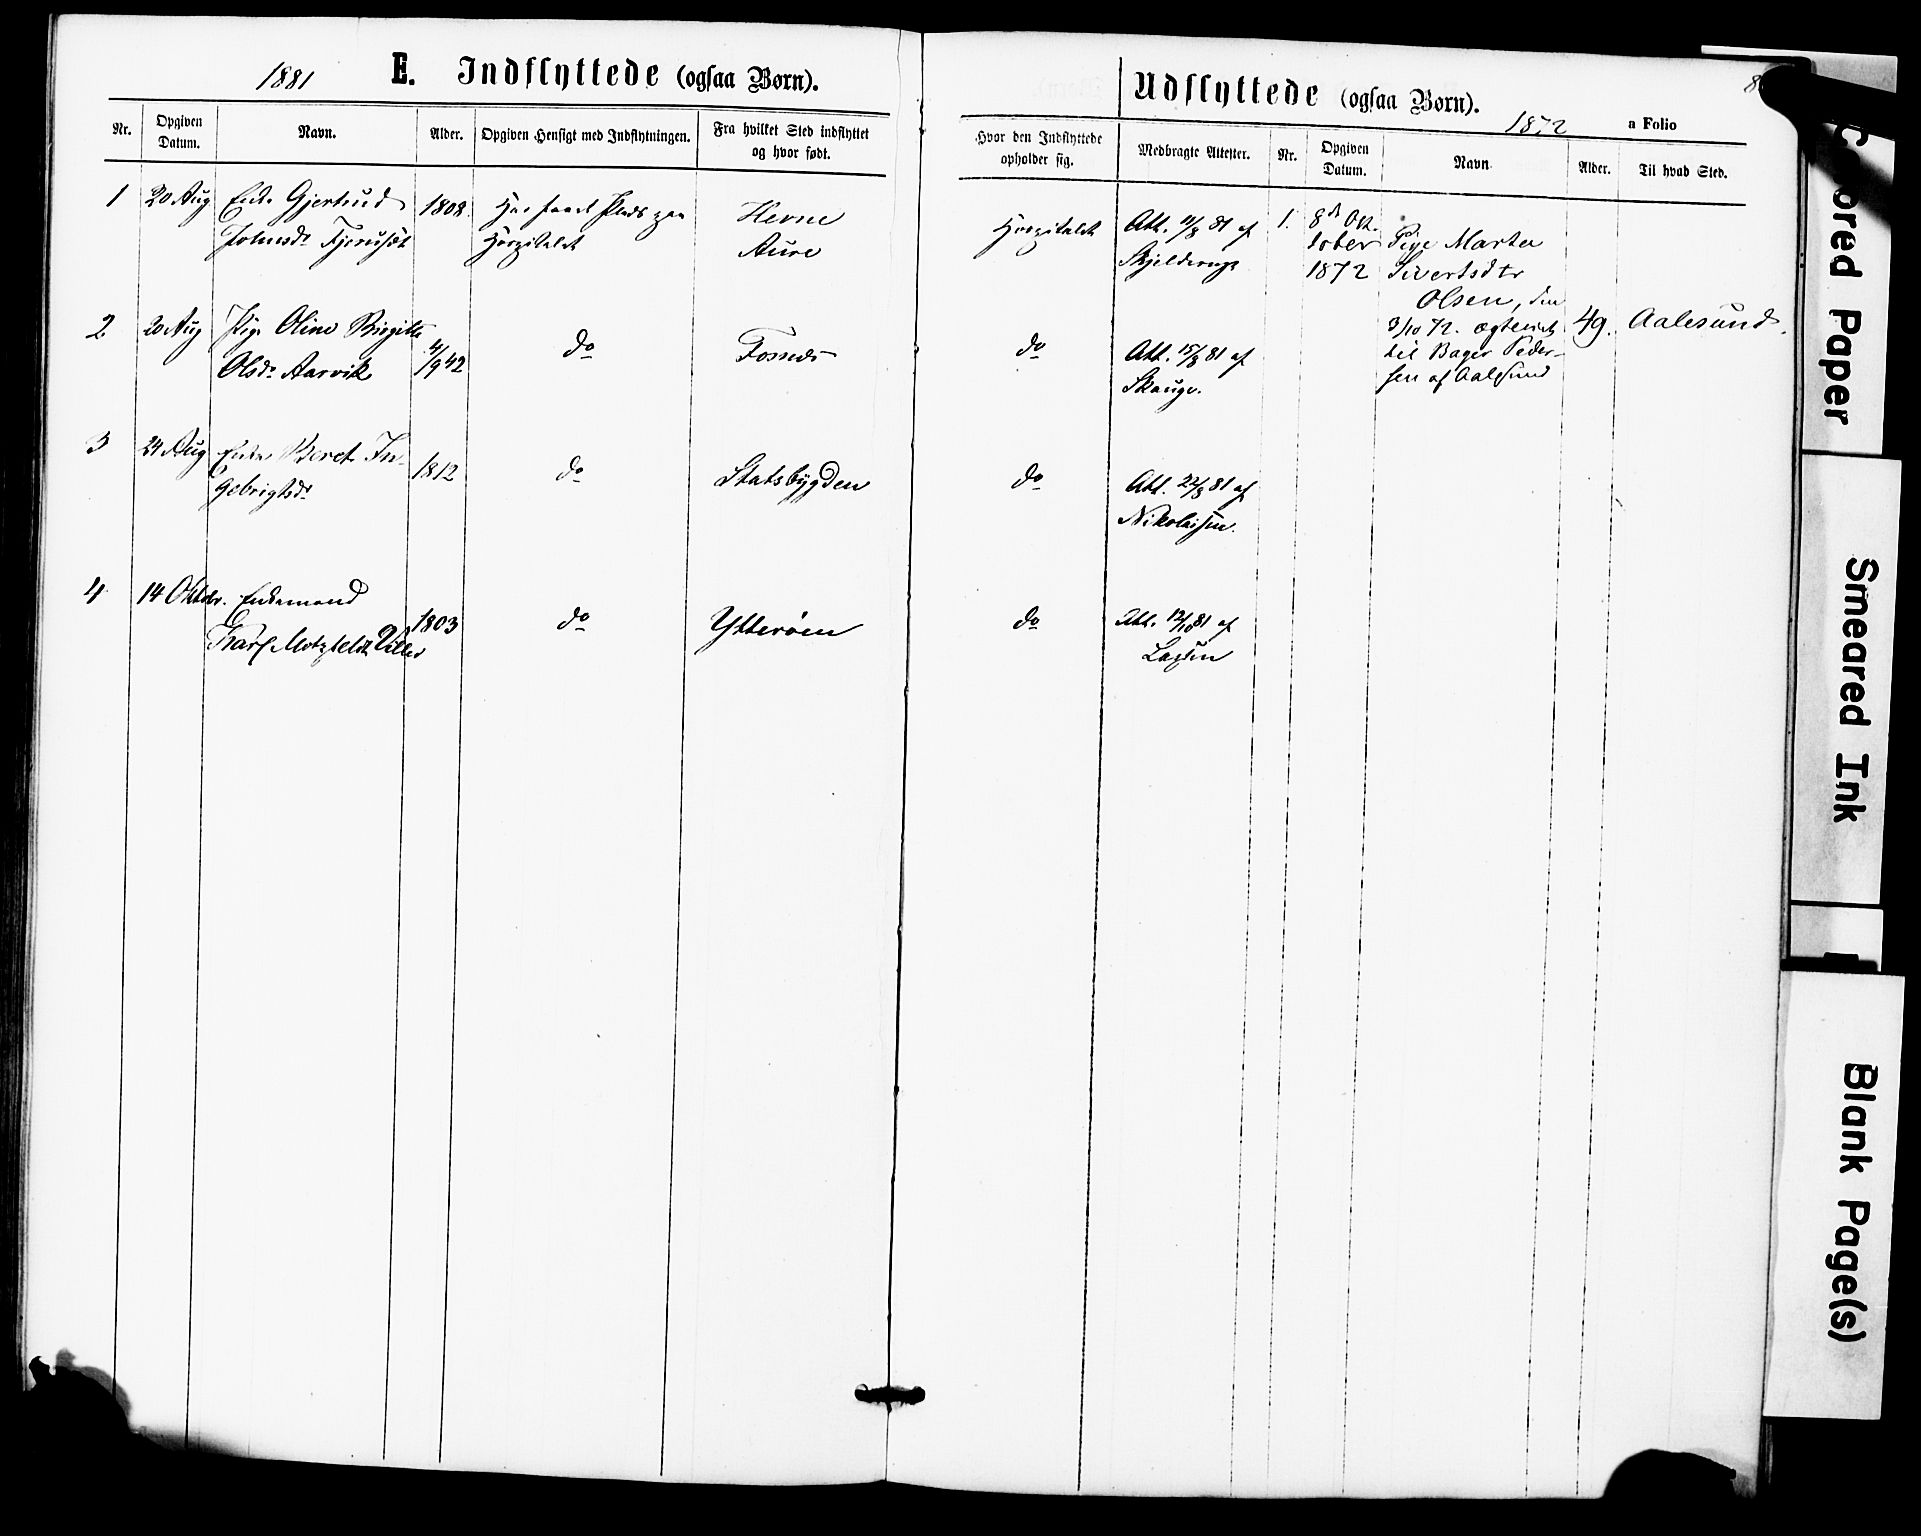 1881 E. Indflyttede (ogsaa Børn).
Nr. Opgiven Datum. Navn. Alder. Opgiven Hensigt med Indflytningen. Fra hvilket Sted indflyttet og hvor født.
1 20 Aug Enke Gjertrud 1808 Har faaet Plads paa Hevne
Johnsdr Hospitalet Aure
2 20 Aug Pige Oline Birgitte 4/9 42 do Fosnæs
Olsdr Aarvik
3 24 Aug Enke Beret In- 1812 do Statsbygden
gebrigtsdr
4 14 Oktobr. Enkemand 1803 do Ytterøen
Motzfeldt
Udflyttede (ogsaa Børn).
1872 a Folio
8
Hvor den Indflyttede opholder sig. Medbragte Attester. Nr. Opgiven Datum. Navn Alder. Til hvad Sted.
Hospitalet Att. 11/8 81 af
Skjelderup
do Att. 15/8 81 af
Skauge.
do Att. 22/8 81 af
Nikolaisen.
do Att. 12/10 81 af
Lassen
1. 8de Ok-
tober Pige Marta
1872 Sivertsdtr
Olsen, den
3/10 72. ægteviet 49. Aalesund.
til Bager Peder-
sen af Aalesund
ored Paper
Smeared Ink
Blank Page(s)